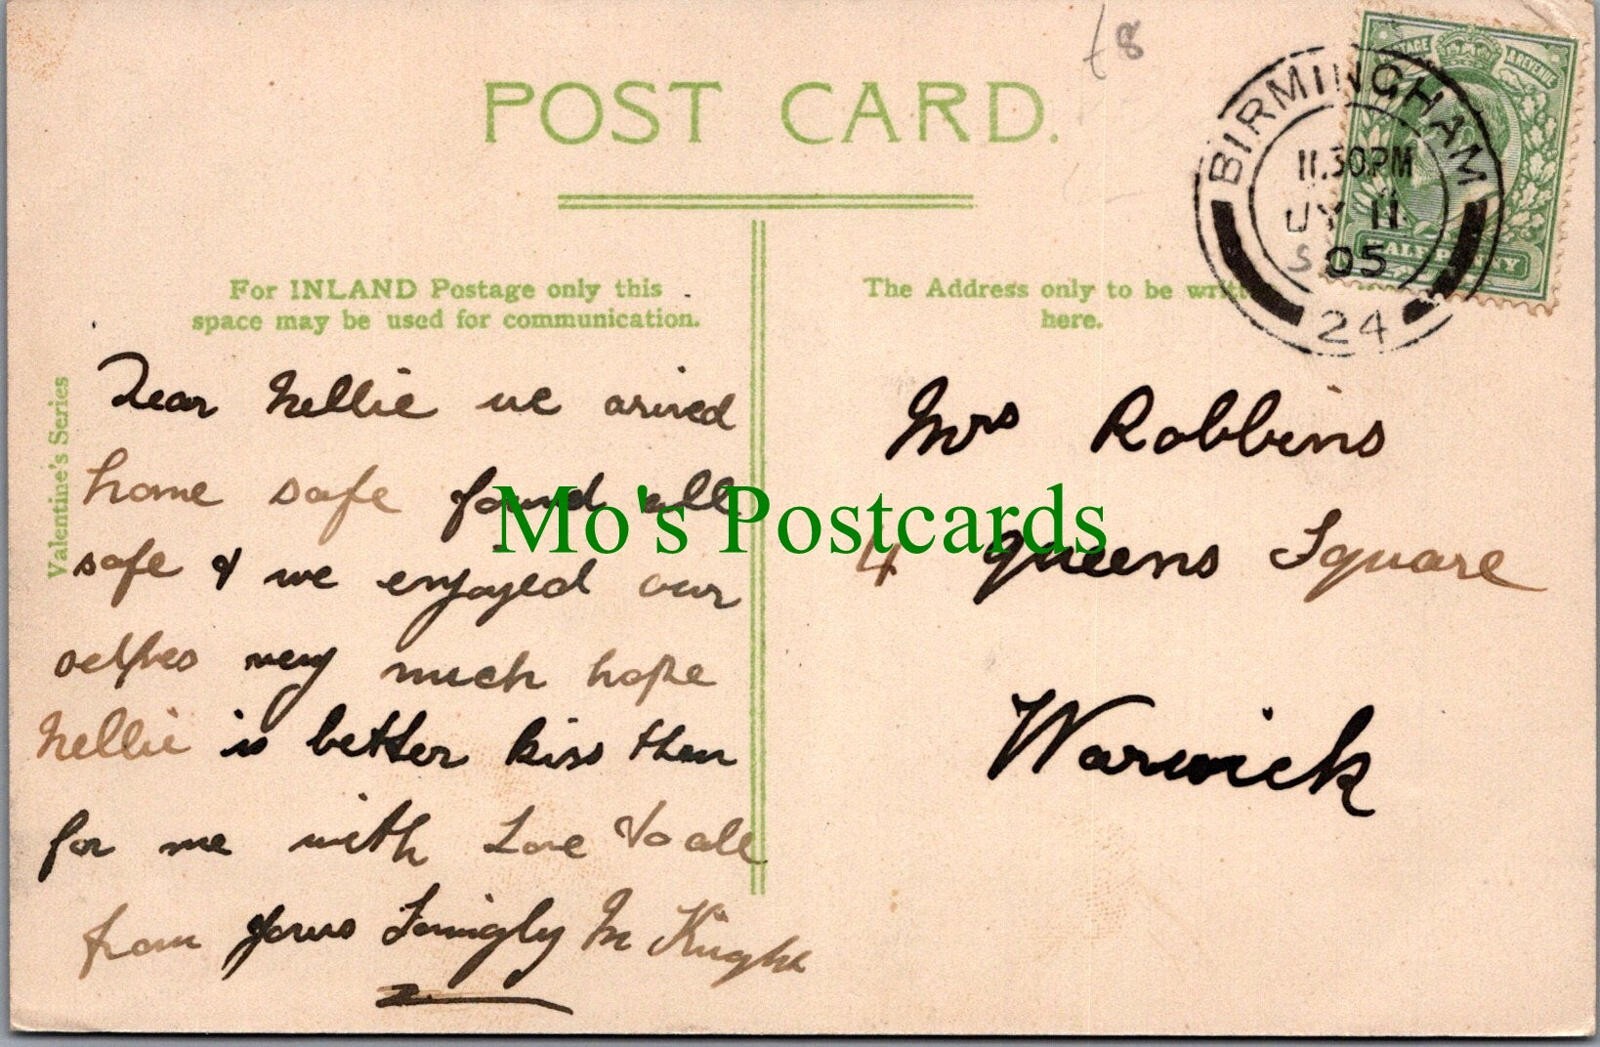 £8
POST CARD.
POSTAGE & REVENUE
HALFPENNY
BIRMINGHAM
11.30PM
JY 11
05
24
For INLAND Postage only this
space may be used for communication.
The Address only to be writt
here.
Valentine's Series
Dear Nellie we arived
home safe found all
safe & we enjoyed our
selfves very much hope
Nellie is better kiss then
for me with Love to all
from yours Lovingly M Knight
Mrs Robbins
4 Queens Square
Warwick
Mo's Postcards